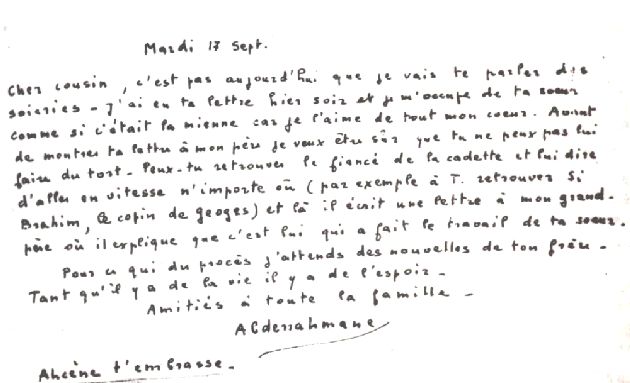 Mardi 17 Sept.
Cher cousin, c'est pas aujourd'hui que je vais te parler des
soieries - J'ai eu ta lettre hier soir et je m'occupe de ta soeur
comme si c'était la mienne car je l'aime de tout mon coeur. Avant
de montrer ta lettre à mon père je veux être sûr que tu ne peux pas lui
faire du tort. Peux-tu retrouver le fiancé de la cadette et lui dire
d'aller en vitesse n'importe où (par exemple à T. retrouver Si
Brahim, le copin de geoges) et là il écrit une lettre à mon grand-
père où il explique que c'est lui qui a fait le travail de ta soeur.
Pour ce qui du procès j'attends des nouvelles de ton frère -
Tant qu'il y a de la vie il y a de l'espoir -
Amitiés à toute la famille -
Abderrahmane
Ahcène t'embrasse -